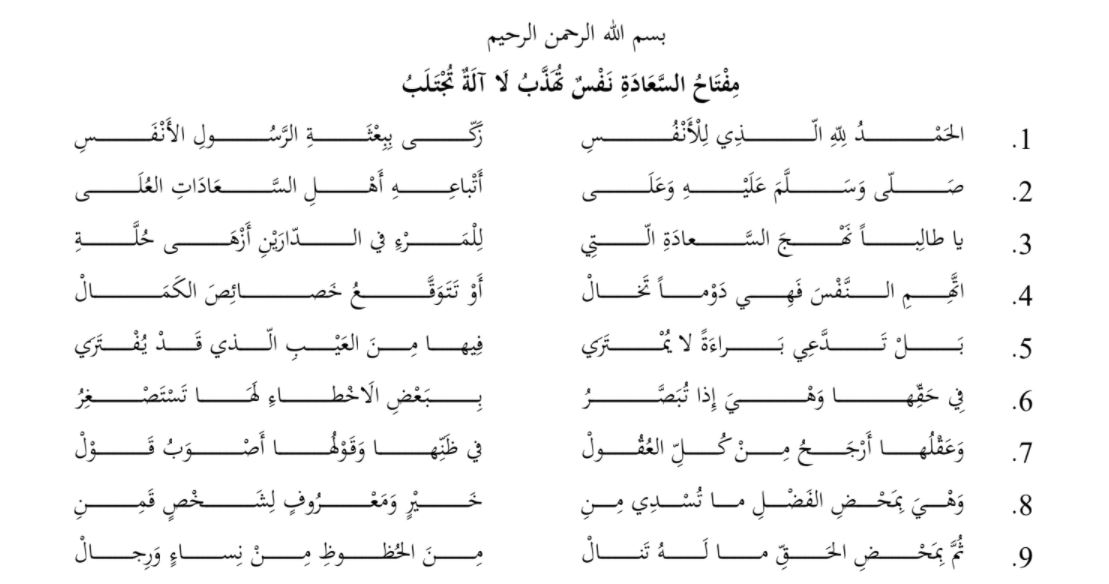 بسم الله الرحمن الرحيم
مِفْتَاحُ السَّعَادَةِ نَفْسٌ تُهَذَّبُ لَا آلَةٌ تُجْتَلَبُ
1. الحَمْدُ لِلَّهِ الّذِي لِلْأَنْفُسِ زَكّى بِبِعْثَةِ الرَّسُولِ الأَنْفَسِ
2. صَلّى وَسَلَّمَ عَلَيْهِ وَعَلَى أَتْباعِهِ أَهْلِ السَّعَادَاتِ العُلَى
3. يا طالِباً نَهْجَ السَّعادَةِ الّتِي لِلْمَرْءِ في الدّارَيْنِ أَزْهَى حُلَّةِ
4. اتَّهِمِ النَّفْسَ فَهِي دَوْماً تَخالْ أَوْ تَتَوَقَّعُ خَصائِصَ الكَمَالْ
5. بَلْ تَدَّعِي بَراءَةً لا يُمْتَرَي فِيها مِنَ العَيْبِ الّذي قَدْ يُفْتَرَي
6. فِي حَقِّها وَهْيَ إِذا تُبَصَّرُ بِبَعْضِ الَاخْطاءِ لَهَا تَسْتَصْغِرُ
7. وَعَقْلُها أَرْجَحُ مِنْ كُلِّ العُقُولْ في ظَنِّها وَقَوْلُهُا أَصْوَبُ قَوْلْ
8. وَهْيَ بِمَحْضِ الفَضْلِ ما تُسْدِي مِنِ خَيْرٍ وَمَعْرُوفٍ لِشَخْصٍ قَمِنِ
9. ثُمَّ بِمَحْضِ الحَقِّ ما لَهُ تَنالْ مِنَ الحُظوظِ مِنْ نِساءٍ وَرِجالْ